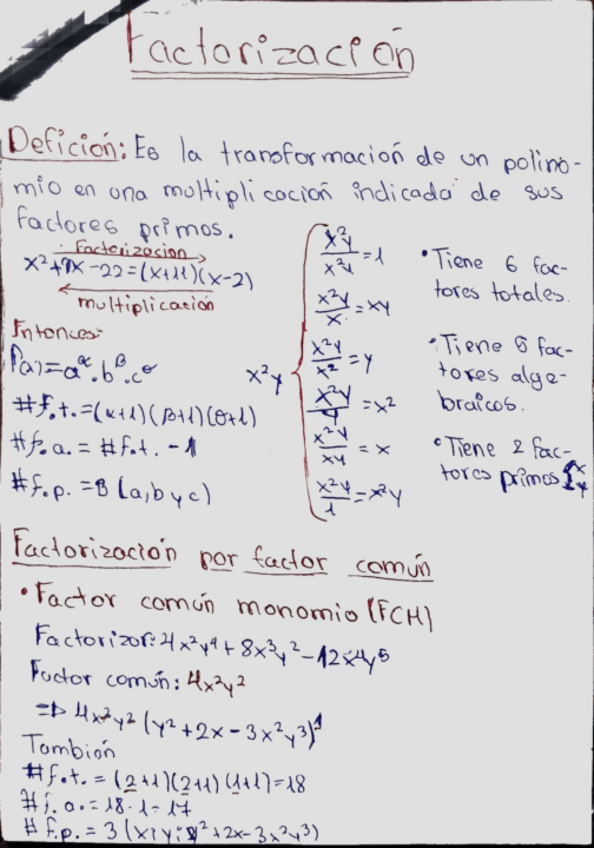 Factorización
Defición: Es la transformación de un polino-
mio en una multiplicación indicada de sus
factores primos.
Factorización
x²+9x-22=(x+11)(x-2)
multiplicación
Entonces:
P(a)=a^α.b^β.c^θ
#f.t.=(α+1)(β+1)(θ+1)
#f.a.=#f.t.-1
#f.p.=3(a,b y c)
x²y
x²y/x²y=1
x²y/x=xy
x²y/x²=y
x²y/y=x²
x²y/xy=x
x²y/1=x²y
• Tiene 6 fac-
tores totales.
• Tiene 5 fac-
tores alge-
braicos.
• Tiene 2 fac-
tores primos {x y
Factorización por factor común
• Factor común monomio (FCM)
Factorizar: 4x²y⁴+8x³y²-12x⁴y⁵
Factor común: 4x²y²
⇒ 4x²y²(y²+2x-3x²y³)¹
También
#f.t.=(2+1)(2+1)(1+1)=18
#f.a.=18-1=17
#f.p.=3(x;y;y²+2x-3x²y³)